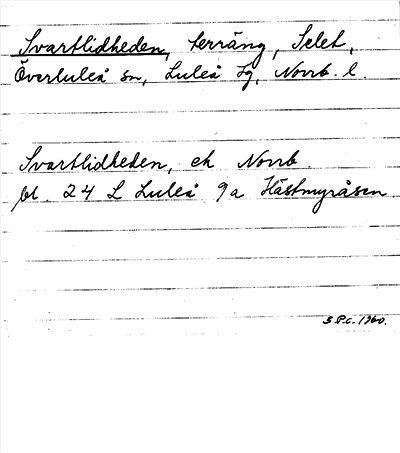 Svartlidheden, terräng, Selet,
Överluleå sn, Luleå tg, Norrb. l.
Svartlidheden, ek Norrb.
bl. 24 L Luleå 9a Hästmyråsen.
S P.C. 1960.